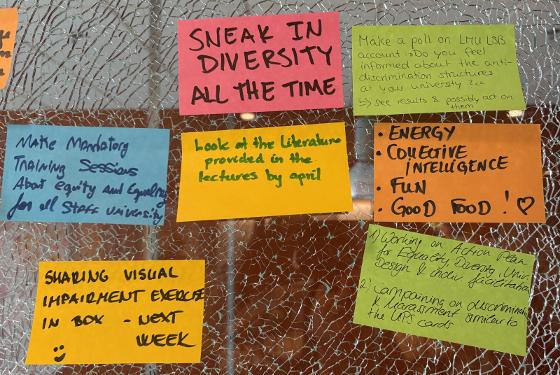 SNEAK IN
DIVERSITY
ALL THE TIME
Make a poll on LMU
account: Do you feel
informed about the anti-
discrimination structures
at your university?
b) see results & possibly act on
them
Make Mandatory
Training Sessions
About equity and Equality
for all Staff university
Look at the Literature
provided in the
lectures by april
• ENERGY
• COLLECTIVE
INTELLIGENCE
• FUN
• GOOD FOOD ! ♡
SHARING VISUAL
IMPAIRMENT EXERCISE
IN BOX - NEXT
WEEK
1) Working on Action Plan
for Equality, Diversity, Univ.
Design &
2) Campaining on discriminati
& Harassment similar to
the cards